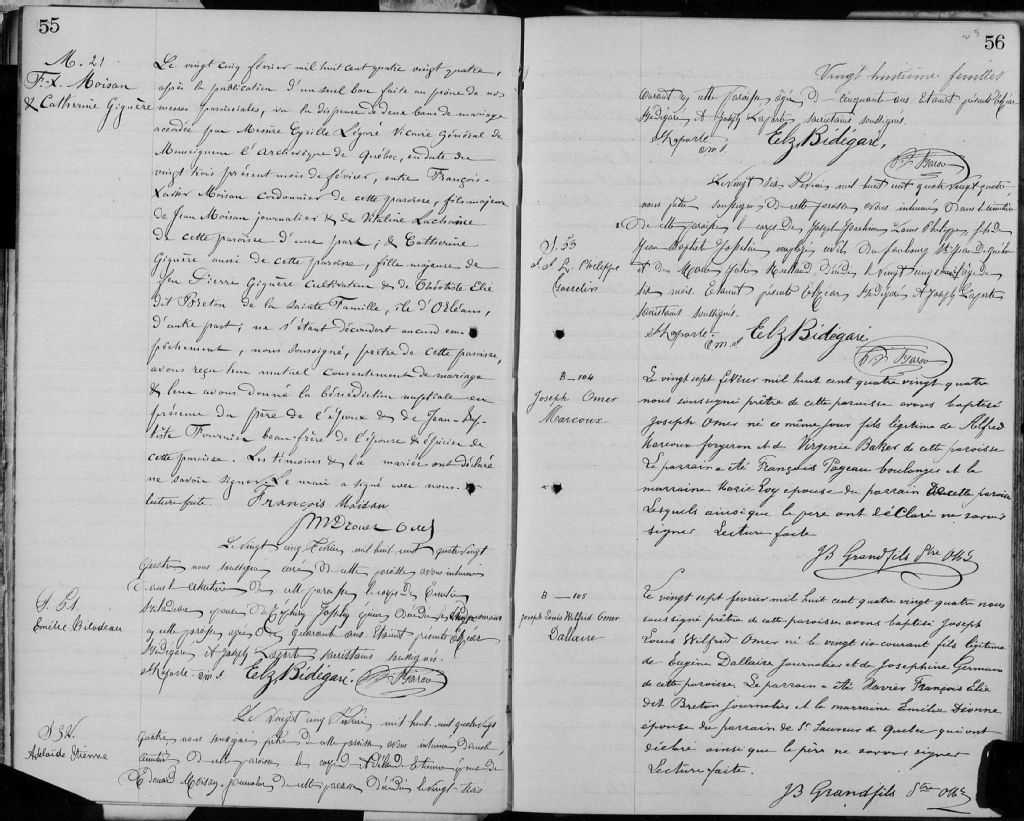 55
M. 21
F-X. Moisan
& Catherine Giguère
Le vingt cinq février mil huit cent quatre vingt quatre,
après la publication d'un seul ban faite au prône de nos
messes paroissiales, vu la dispense de deux bans de mariage
accordée par Messire Cyrille Légaré Vicaire Général de
Monseigneur l'Archevêque de Québec, en date du
vingt trois présent mois de février, entre François-
Xavier Moisan cordonnier de cette paroisse, fils majeur
de Jean Moisan journalier & de Vitaline Lachance
de cette paroisse d'une part; & Catherine
Giguère aussi de cette paroisse, fille majeure de
feu Pierre Giguère cultivateur & de Théotiste Elie
dit Breton de la Sainte Famille, île d'Orléans,
d'autre part; ne s'étant découvert aucun em-
pêchement, nous soussigné, prêtre de cette paroisse,
avons reçu leur mutuel consentement de mariage
& leur avons donné la bénédiction nuptiale en
présence du père de l'époux & de Jean-Bap-
tiste Fournier beau-frère de l'épouse & épicier de
cette paroisse. Les témoins & la mariée ont déclaré
ne savoir signer. Le mari a signé avec nous.
lecture faite. François Moisan
Drouet
Le vingt cinq Février mil huit cent quatre vingt
quatre nous soussigné curé de cette paroisse avons inhumé
dans le cimetière de cette paroisse le corps de
S. 51.
Emélie Bilodeau
Bilodeau épouse de
en cette paroisse agée de quarante ans Etaient présents
Bidégaré et Joseph Laporte sacristains soussignés.
Js Laporte. Elz. Bidégaré.
S 52.
Adelaide Etienne
Le Vingt cinq Février mil huit cent quatre vingt
quatre nous soussigné prêtre de cette paroisse avons inhumé dans le
cimetière de cette paroisse le corps d'Adelaide Etienne épouse de
Edouard Moisan journalier de cette paroisse décédée le vingt trois
56
Vingt huitième feuillet
courant en cette paroisse agée de cinquante ans Etaient présents Elzéar
Bidégaré et Joseph Laporte sacristains soussignés.
Js Laporte Elz. Bidégaré.
Le vingt six Février mil huit cent quatre vingt quatre
nous prêtre soussigné de cette paroisse avons inhumé dans le cimetière
de cette paroisse le corps de Joseph Joachim Louis Philippe, fils de
S. 53
J. J. L. Philippe
Gosselin
Jean Baptist Gosselin employé civil du faubourg St Jean de Québec
et de Marie Julie décédé le vingt cinq courant agé de
six mois. Etaient présents Elzéar Bidégaré et Joseph Laporte
sacristains soussignés.
Js Laporte Elz Bidégaré
B — 104
Joseph Omer
Marcoux
Le vingt sept février mil huit cent quatre vingt quatre
nous soussigné prêtre de cette paroisse avons baptisé
Joseph Omer né ce même jour fils légitime de Alfred
Marcoux forgeron et de Virginie Baker de cette paroisse
Le parrain a été François Pageau boulanger et la
marraine Marie Roy épouse du parrain de cette paroisse
Lesquels ainsi que le père ont déclaré ne savoir
signer Lecture faite
JB Grandfils Ptre
B — 105
Joseph Louis Wilfred Omer
Dallaire
Le vingt sept fevrier mil huit cent quatre vingt quatre nous
soussigné prêtre de cette paroisse avons baptisé Joseph
Louis Wilfred Omer né le vingt six courant fils légitime
de Eugène Dallaire journalier et de Josephine Germain
de cette paroisse Le parrain a été Xavier François Elie
dit Breton journalier et la marraine Emélie Dionne
épouse du parrain de St Sauveur de Québec qui ont
déclaré ainsi que le père ne savoir signer
Lecture faite.
JB Grandfils Ptre